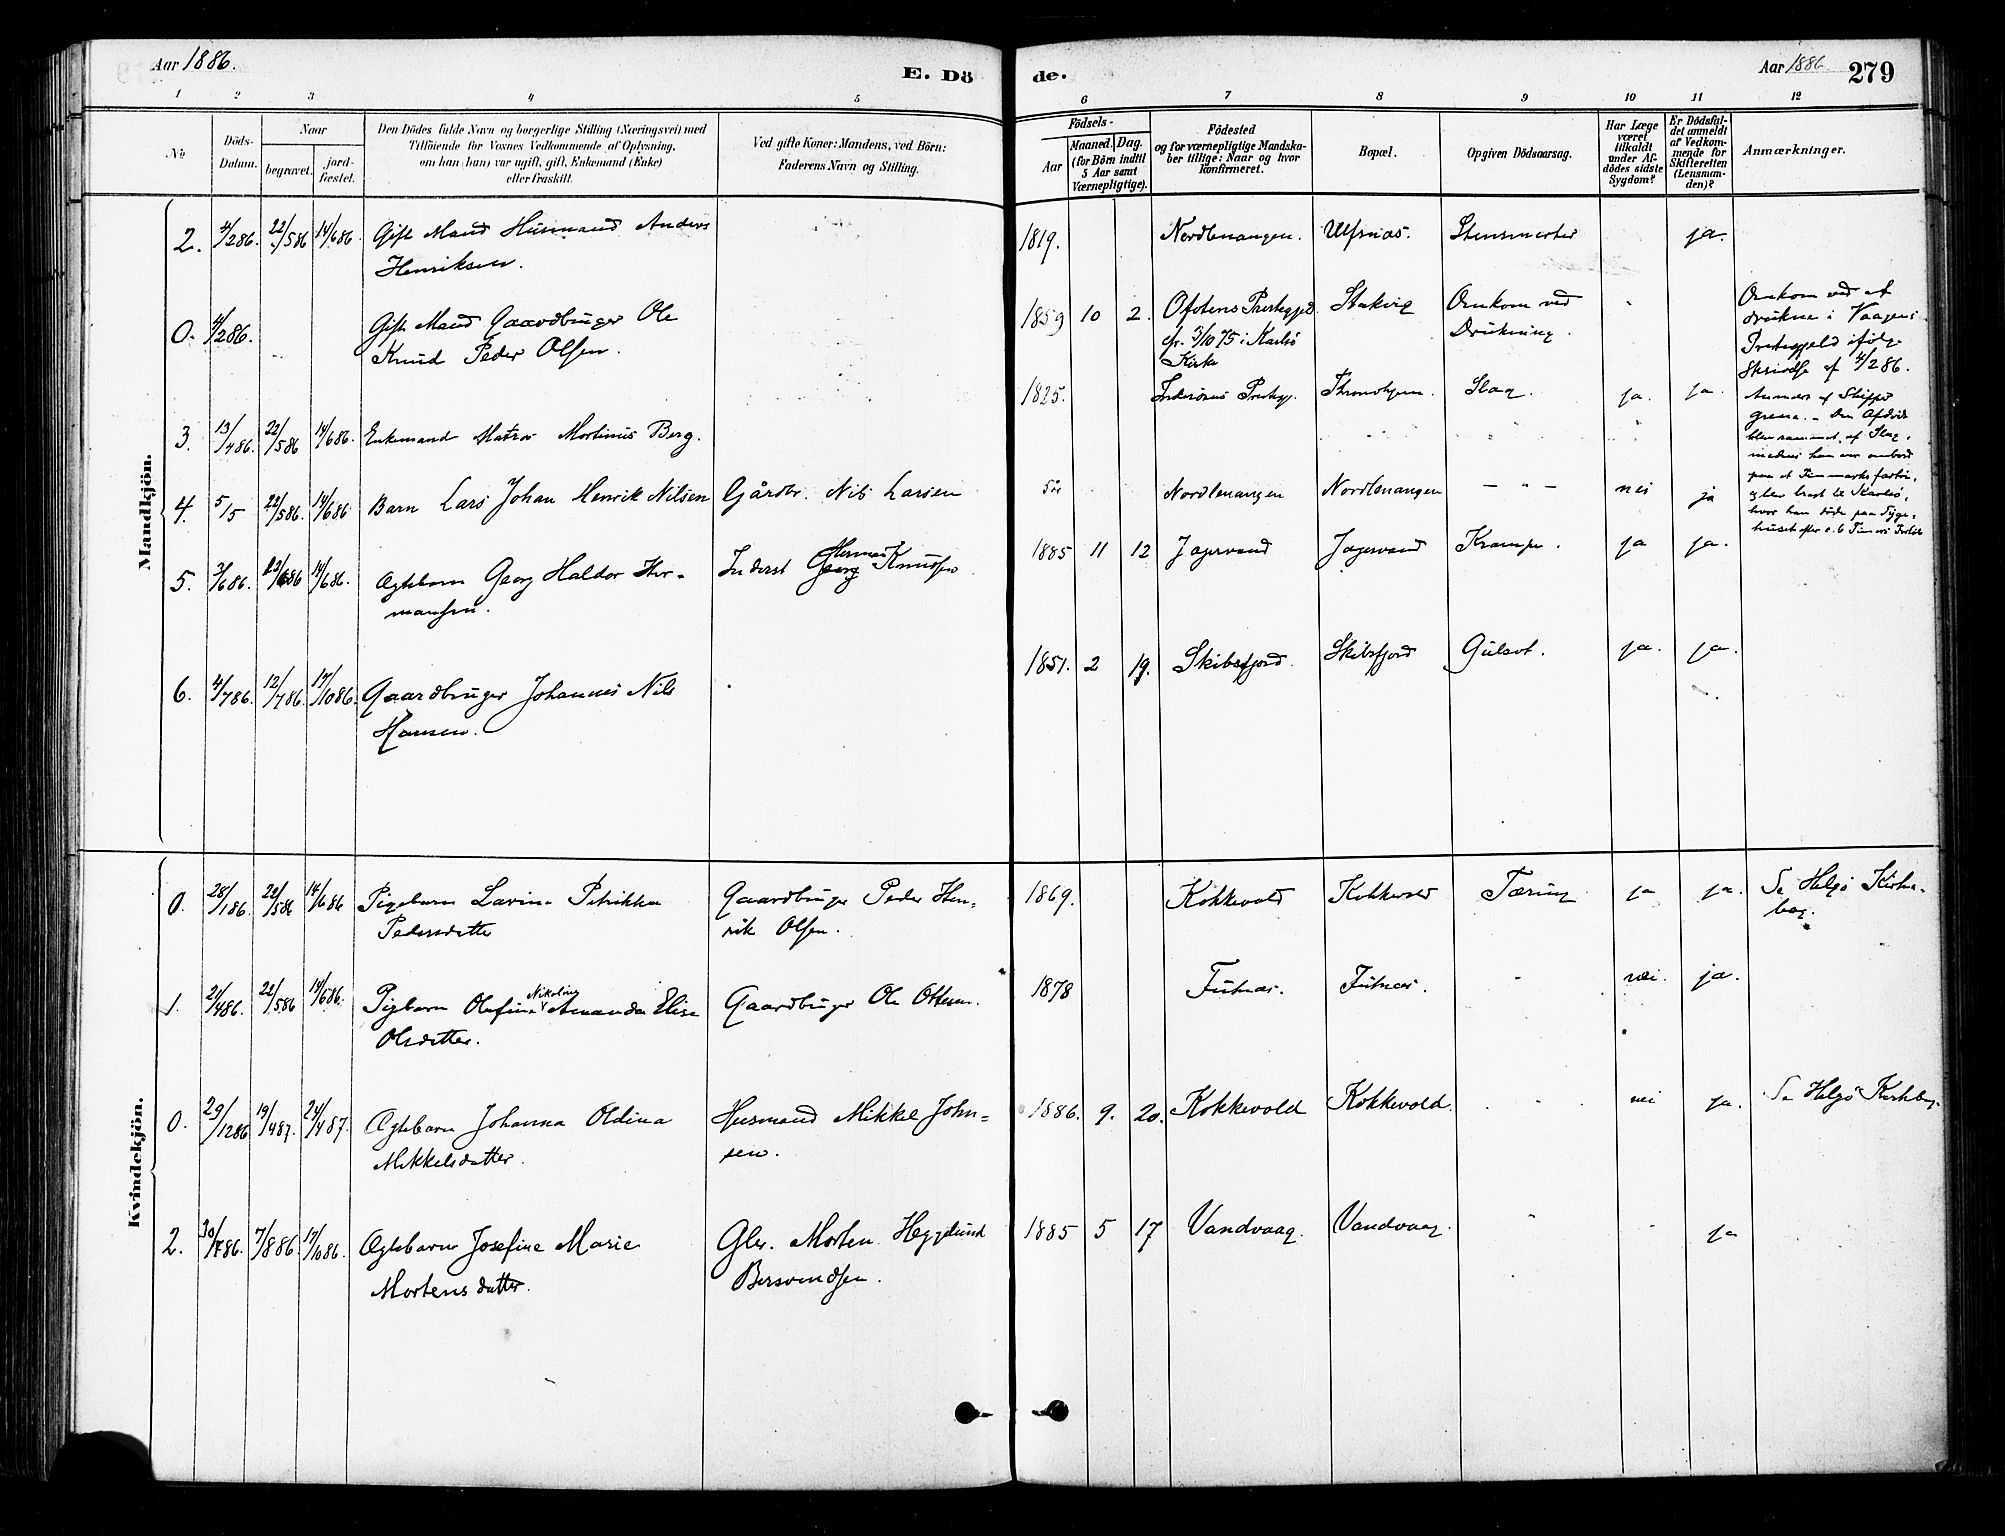 Aar 1886.
E. Dö
de.
Aar 1886
279
1 2 3 4 5 6 7 8 9 10 11 12
No
Döds-
Datum.
Naar
begravet.
jord-
fæstet.
Den Dödes fulde Navn og borgerlige Stilling (Næringsvei) med
Tilföiende for Voxnes Vedkommende af Oplysning,
om han (hun) var ugift, gift, Enkemand (Enke)
eller fraskilt.
Ved gifte Koner: Mandens, ved Börn:
Faderens Navn og Stilling.
Födsels-
Aar
Maaned. Dag.
(for Börn indtil
5 Aar samt
Værnepligtige).
Födested
og for værnepligtige Mandska-
ber tillige: Naar og hvor
konfirmeret.
Bopæl.
Opgiven Dödsaarsag.
Har Læge
været
tilkaldt
under Af-
dödes sidste
Sygdom?
Er Dödsfal-
det anmeldt
af Vedkom-
mende for
Skifteretten
(Lensman-
den)?
Anmærkninger.
Mandkjön.
2. 4/286. 22/586 14/686. Gift Mand Husmand Anders
Henriksen.
1819. Nordlenangen. Ulfsnæs. Stensmerter ja.
0. 4/286. Gift Mand Gaardbruger Ole
Knud Peder Olsen.
1859 10 2. Ofotens Prestegjd. Stakvig Omkom ved
cfr. 3/10 75 i Karlsö Drukning.
Kirke
Omkom ved at
drukne i Vaagens
Prestegjeld ifølge
Skrivelse af 4/286.
3. 13/486. 22/586 14/686. Enkemand Matros Mortinus Berg.
1825. Inderöens Prestegj. Throndhjem. Slag. ja. ja.
Den Afdöde
blev rammet af Slag,
medens han var ombord
og blev bragt til Karlsö,
hvor han döde paa Syge-
huset efter
4. 5/5 22/586. 14/686. Barn Lars Johan Henrik Nilsen Gårdbr. Nils Larsen
5 år Nordlenangen Nordlenangen — " — nei ja
5. 3/686. 23/686 14/686. Ægtebarn Georg Haldor Her-
mansen.
Inderst Georg Herman Knudsen
1885 11 12 Jægervand Jægervand Krampe. ja ja.
6. 4/786. 12/786. 17/1086. Gaardbruger Johannes Nils
Hansen.
1851. 2 19. Skibsfjord. Skibsfjord Gulsot. ja. ja.
Kvindekjön.
0. 28/186. 29/586 14/686 Pigebarn Lavina Petrikka
Pedersdatter
Gaardbruger Peder Hen-
rik Olsen.
1869. Kokkevold Kokkevold Tæring ja ja. Se Helgö Kirke-
bog.
1. 21/486. 22/586 14/686. Pigebarn Olufine Nikoline Amanda Elise
Olsdatter.
Gaardbruger Ole Ottesen.
1878 Futnæs. Futnæs. " nei ja.
0. 29/1286 19/487. 24/487. Ægtebarn Johanna Oldina
Mikkelsdatter.
Husmand Mikkel John-
sen.
1886. 9. 20. Kokkevold Kokkevold. nei ja. Se Helgö Kirkebog.
2. 30/786. 7/886 17/1086. Ægtebarn Josefine Marie
Mortensdatter.
Gbr. Morten Hegglund
Bersvendsen.
1885 5 17 Vandvaag. Vandvaag. " " ja